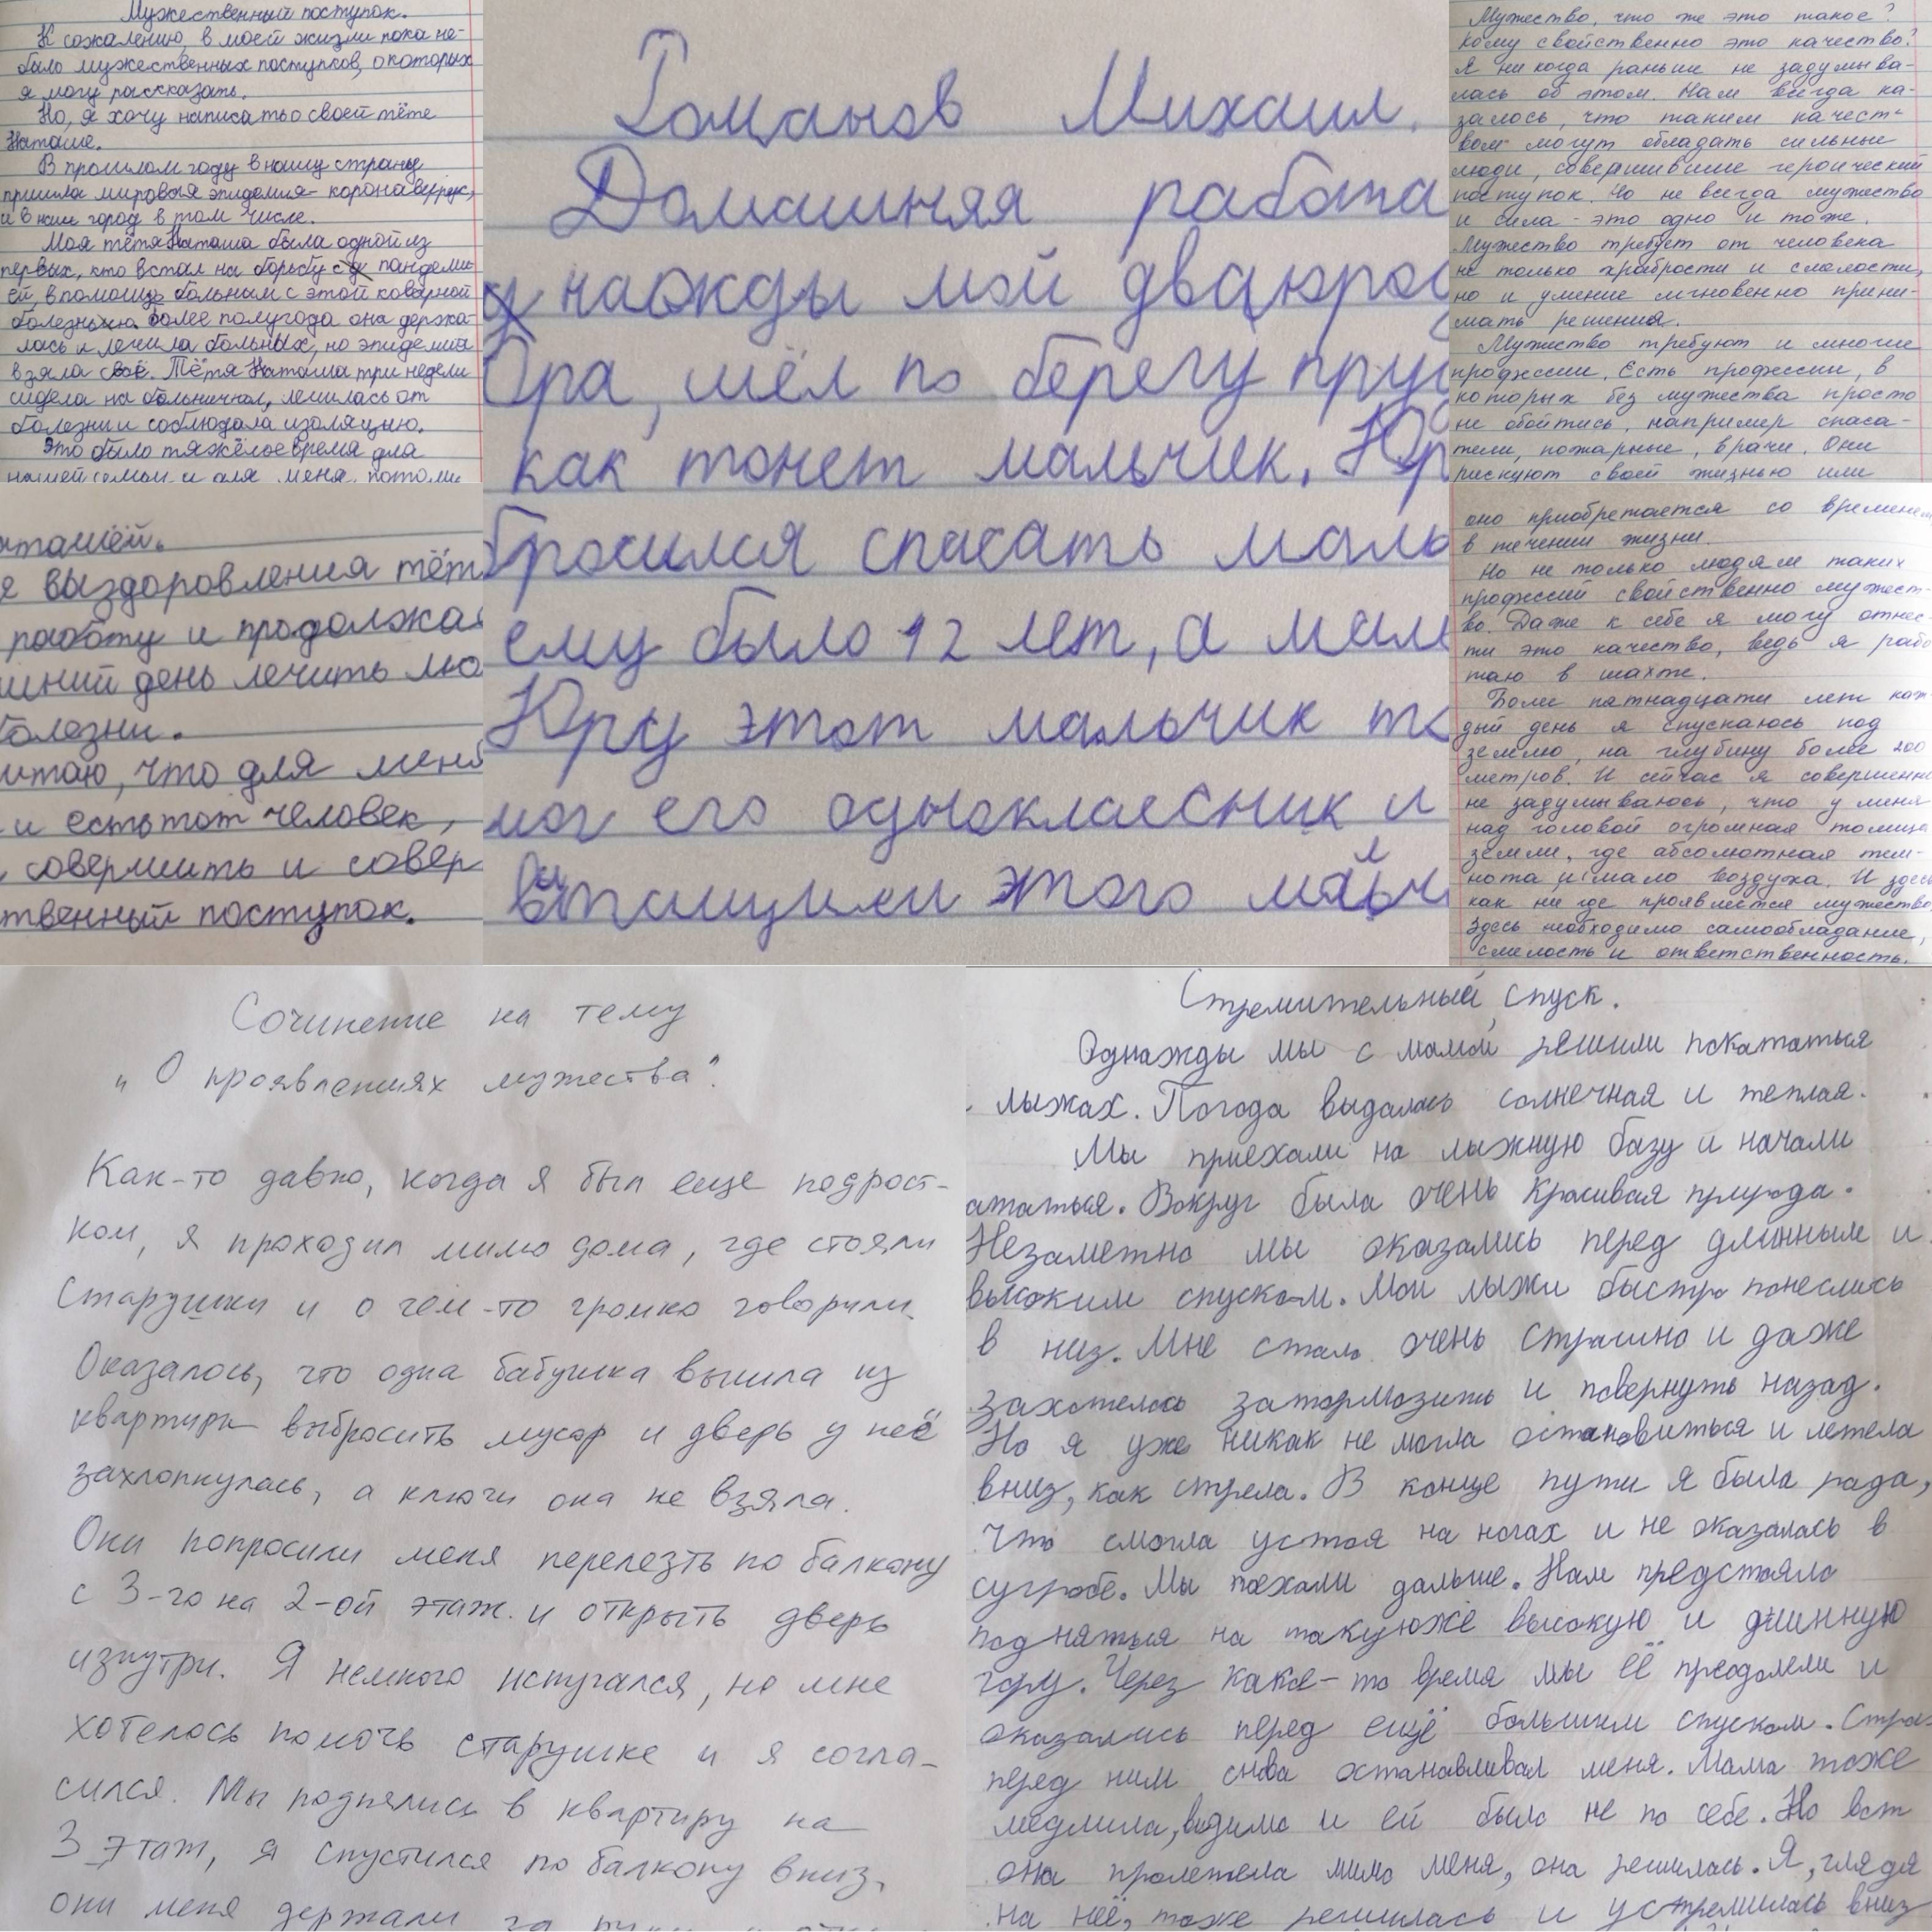 Мужественный поступок.
К сожалению, в моей жизни пока не-
было мужественных поступков, о которых
я могу рассказать.
Но, я хочу написать о своей тёте
Наташе.
В прошлом году в нашу страну
пришла мировая эпидемия - коронавирус,
и в наш город в том числе.
Моя тётя Наташа была одной из
первых, кто встал на борьбу с пандеми-
ей, в помощь больным с этой коварной
болезнью. Более полугода она держа-
лась и лечила больных, но эпидемия
взяла своё. Тётя Наташа три недели
сидела на больничном, лечилась от
болезни и соблюдала изоляцию.
Это было тяжёлое время для
нашей семьи и для меня, потому
аташей.
я выздоровления тёт
работу и продолжа
шний день лечить лю
болезни.
итаю, что для меня
и есть тот человек,
совершить и совер
твенный поступок.
Романов Михаил.
Домашняя работа
днажды мой двоюрод
Юра, шёл по берегу пруд
как тонет мальчик. Юр
бросился спасать маль
ему было 12 лет, а маль
Юру этот мальчик то
мог его одноклассник и
вытащили этого мальч
Мужество, что же это такое?
Кому свойственно это качество?
Я никогда раньше не задумыва-
лась об этом. Нам всегда ка-
залось, что таким качест-
вом могут обладать сильные
люди, совершившие героический
поступок. Но не всегда мужество
и сила - это одно и тоже.
Мужество требует от человека
не только храбрости и смелости,
но и умение мгновенно прини-
мать решения.
Мужество требуют и многие
профессии. Есть профессии, в
которых без мужества просто
не обойтись, например спаса-
тели, пожарные, врачи. Они
рискуют своей жизнью или
оно приобретается со временем
в течении жизни.
Но не только людям таких
профессий свойственно мужест-
во. Даже к себе я могу отнес-
ти это качество, ведь я рабо
таю в шахте.
Более пятнадцати лет каж-
дый день я спускаюсь под
землю, на глубину более 200
метров. И сейчас я совершенно
не задумываюсь, что у меня
над головой огромная толща
земли, где абсолютная тем-
нота и мало воздуха. И здесь
как ни где проявляется мужество
Здесь необходимо самообладание,
смелость и ответственность.
Сочинение на тему
"О проявлениях мужества".
Как-то давно, когда я был еще подрост-
ком, я проходил мимо дома, где стояли
старушки и о чём-то громко говорили.
Оказалось, что одна бабушка вышла из
квартиры выбросить мусор и дверь у неё
захлопнулась, а ключи она не взяла.
Они попросили меня перелезть по балкону
с 3-го на 2-ой этаж и открыть дверь
изнутри. Я немного испугался, но мне
хотелось помочь старушке и я согла-
сился. Мы поднялись в квартиру на
3 этаж, я спустился по балкону вниз,
они меня держали за руки
Стремительный спуск.
Однажды мы с мамой решили покататься
лыжах. Погода выдалась солнечная и теплая.
Мы приехали на лыжную базу и начали
ататься. Вокруг была очень красивая природа.
Незаметно мы оказались перед длинным и
высоким спуском. Мои лыжи быстро понеслись
в низ. Мне стало очень страшно и даже
захотелось затормозить и повернуть назад.
Но я уже никак не могла остановиться и летела
вниз, как стрела. В конце пути я была рада,
что смогла устоя на ногах и не оказалась в
сугробе. Мы поехали дальше. Нам предстояло
подняться на такуюже высокую и длинную
гору. Через какое-то время мы её преодолели и
оказались перед ещё большим спуском. Стра
перед ним снова останавливал меня. Мама тоже
медлила, видимо и ей было не по себе. Но вот
она пролетела мимо меня, она решилась. Я, глядя
на неё, тоже решилась и устремилась вниз